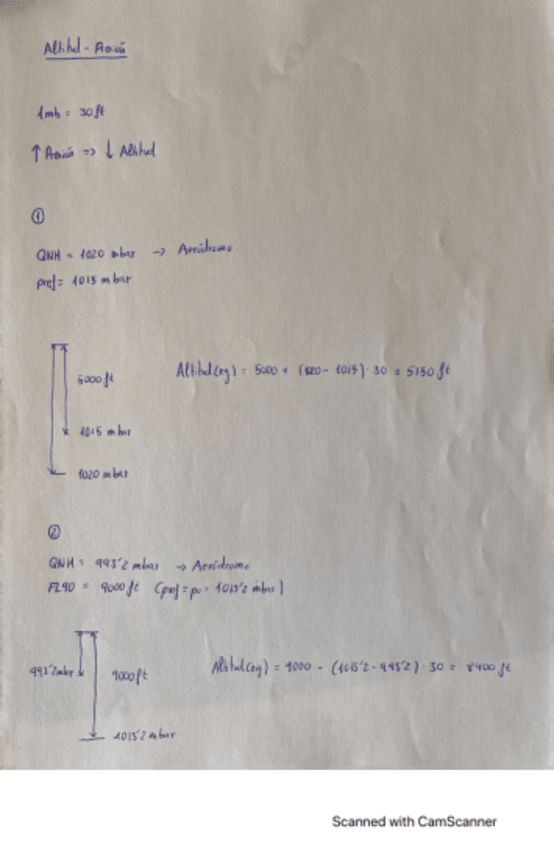 Altitud - Presión
1mb = 30 ft
↑ Presión => ↓ Altitud
①
QNH = 1020 mbar -> Aeródromo
pref = 1015 mbar
5000 ft
Altitud (eg) = 5000 + (1020 - 1015) · 30 = 5150 ft
1015 mbar
1020 mbar
②
QNH = 993'2 mbar -> Aeródromo
FL90 = 9000 ft (pref = po = 1013'2 mbar)
993'2 mbar
9000 ft
Altitud (eg) = 9000 - (1013'2 - 993'2) · 30 = 8400 ft
1013'2 mbar
Scanned with CamScanner